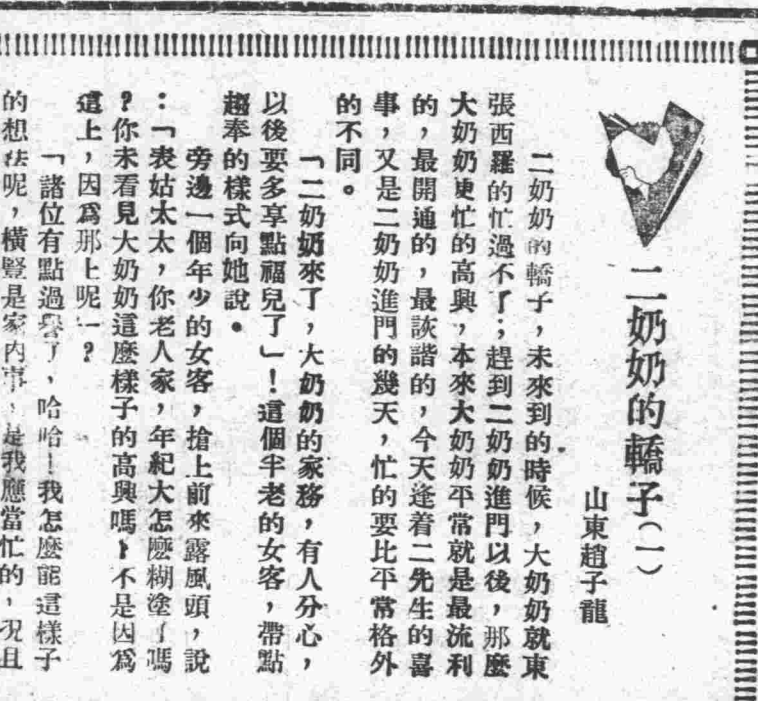 二奶奶的轎子(一)
山東趙子龍
二奶奶的轎子,未來到的時候,大奶奶就東
張西羅的忙過不了;趕到二奶奶進門以後,那麼
大奶奶更忙的高興,本來大奶奶平常就是最流利
的,最開通的,最詼諧的,今天逢着二先生的喜
事,又是二奶奶進門的幾天,忙的要比平常格外
的不同。
「二奶奶來了,大奶奶的家務,有人分心,
以後要多享點福兒了」!這個半老的女客,帶點
趨奉的樣式向她說。
旁邊一個年少的女客,搶上前來露風頭,說
:「表姑太太,你老人家,年紀大怎麼糊塗了嗎
?你未看見大奶奶這麼樣子的高興嗎?不是因爲
這上,因爲那上呢」?
「諸位有點過譽了,哈哈!我怎麼能這樣子
的想法呢,橫豎是家內事,是我應當忙的,況且